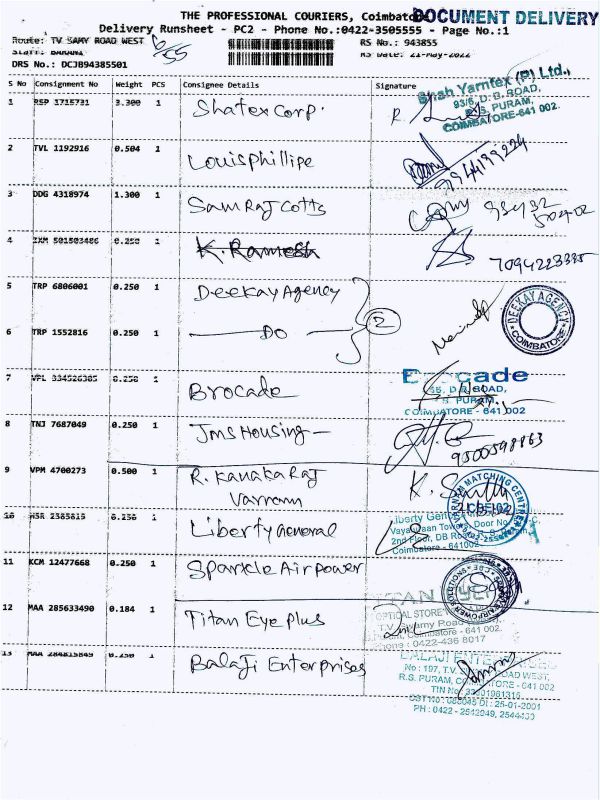 THE PROFESSIONAL COURIERS, Coimbatore
DOCUMENT DELIVERY
Delivery Runsheet - PC2 - Phone No.:0422-3505555 - Page No.:1
Route: TV SAMY ROAD WEST
RS No.: 943855
RS Date: 21-May-2022
DRS No.: DCJB94385501
S No Consignment No Weight PCS Consignee Details Signature
1 RSP 1715731 3.300 1 Shatex Corp.
Shah Yarntex (P) Ltd.,
93/6, D. B. ROAD,
R.S. PURAM,
COIMBATORE-641 002.
2 TVL 1192916 0.504 1 Louisphillipe
3 DDG 4318974 1.300 1 Samraj Cotts
4 IXM 501503486 0.250 1 K. Ramesh
5 TRP 6806001 0.250 1 Deekay Agency
2
6 TRP 1552816 0.250 1 DO
DEEKAY AGENCY
COIMBATORE
7 VPL 334526385 0.250 1 Brocade
D.B. ROAD,
PURAM,
COIMBATORE - 641 002
8 TNJ 7687049 0.250 1 Jms Housing
9500598863
9 VPM 4700273 0.500 1 R. Kanakaraj
Varnam
K.
MATCHING CENTRE
10 HSR 2385815 0.250 1 Liberty General
2nd Floor, DB Road
Coimbatore - 641002
11 KCM 12477668 0.250 1 Sparkle Airpower
12 MAA 285633490 0.184 1 Titan Eye Plus
TITAN EYE
OPTICAL STORE
Coimbatore - 641 002.
Phone : 0422-436 8017
13 MAA 284815849 0.250 1 Balaji Enterprises
BALAJI ENTERPRISES
No : 197, T.V. ROAD WEST,
R.S. PURAM, COIMBATORE - 641 002
PH : 0422 - 2542949, 2544430